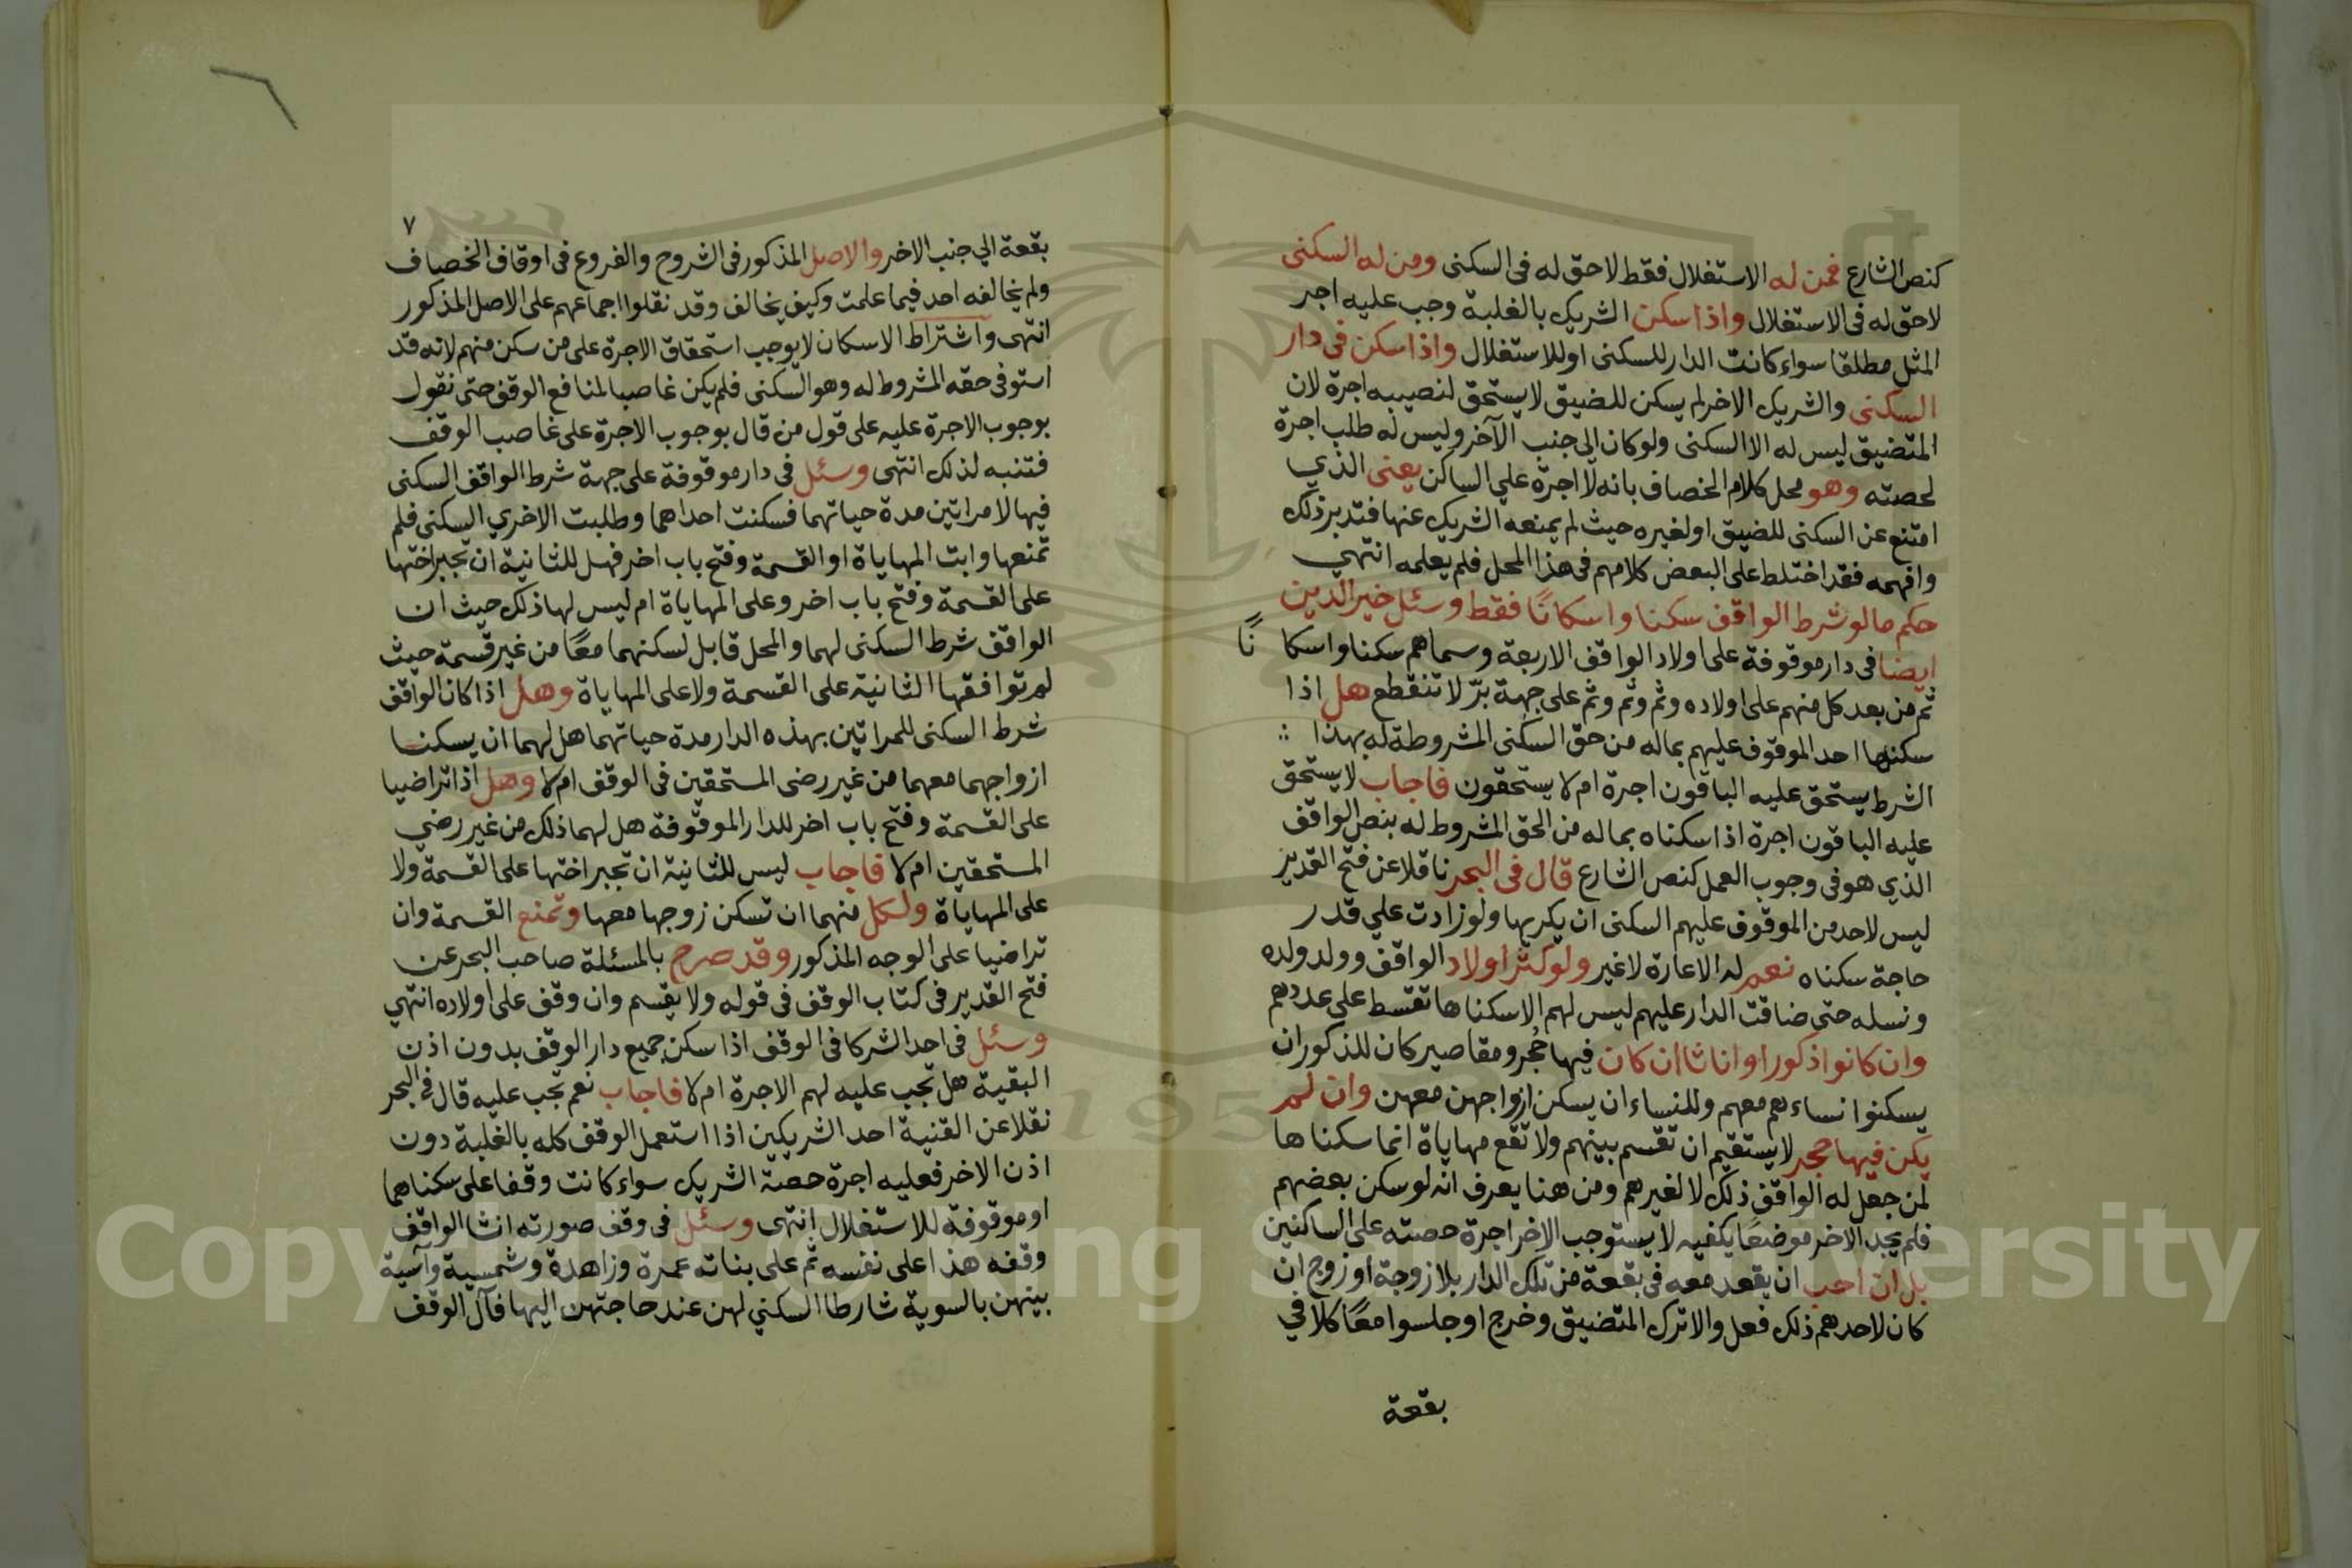 كنص الشارع فمن له الاستغلال فقط لا حق له في السكنى ومن له السكنى
لا حق له في الاستغلال واذا سكن الشريك بالغلبة وجب عليه اجر
المثل مطلقا سواء كانت الدار للسكنى او للاستغلال واذا سكن في دار
السكنى والشريك الاخر لم يسكن للضيق لا يستحق لنصيبه اجرة لان
المتضيق ليس له الا السكنى ولو كان الي جنب الآخر وليس له طلب اجرة
لحصته وهو محل كلام الخصاف بانه لا اجرة علي الساكن يعنى الذي
امتنع عن السكنى للضيق او لغيره حيث لم يمنعه الشريك عنها فتدبر ذلك
وافهمه فقد اختلط على البعض كلامهم في هذا المحل فلم يعلمه انتهي
حكم ما لو شرط الواقف سكنا واسكانًا فقط وسئل خير الدين
ايضا في دار موقوفة على اولاد الواقف الاربعة وسماهم سكنا واسكانًا
ثم من بعد كل منهم على اولاده وثم وثم وثم على جهة برّ لا تنقطع هل اذا
سكنها احد الموقوف عليهم بماله من حق السكنى المشروطة له بهذا
الشرط يستحق عليه الباقون اجرة ام لا يستحقون فاجاب لا يستحق
عليه الباقون اجرة اذا سكناه بماله من الحق المشروط له بنص الواقف
الذي هو في وجوب العمل كنص الشارع قال في البحر ناقلا عن فتح القدير
ليس لاحد من الموقوف عليهم السكنى ان يكريها ولو زادت علي قدر
حاجة سكناه نعم له الاعارة لا غير ولو كثر اولاد الواقف وولد ولده
ونسله حتى ضاقت الدار عليهم ليس لهم الا سكناها تقتسط على عددهم
وان كانوا ذكورا واناثا ان كان فيها حُجر ومقاصير كان للذكور ان
يسكنوا نساءهم معهم وللنساء ان يسكن ازواجهن معهن وان لم
يكن فيها حجر لا يستقيم ان تقسم بينهم ولا تقع مهاياة انما سكناها
لمن جعل له الواقف ذلك لا لغيرهم ومن هنا يعرف انه لو سكن بعضهم
فلم يجد الاخر موضعًا يكفيه لا يستوجب الاخر اجرة حصته على الساكنين
بل ان احب ان يقعد معه في بقعة من تلك الدار بلا زوجة او زوج ان
كان لاحدهم ذلك فعل والا ترك المتضيق وخرج او جلسوا معًا كلا في
بقعة
٧
بقعة الي جنب الاخر والاصل المذكور في الشروح والفروع في اوقاف الخصاف
ولم يخالفه احد فيما علمت وكيف يخالف وقد نقلوا اجماعهم على الاصل المذكور
انتهى واشتراط الاسكان لا يوجب استحقاق الاجرة على من سكن منهم لانه قد
استوفى حقه المشروط له وهو السكنى فلم يكن غاصبا لمنافع الوقف حتى نقول
بوجوب الاجرة عليه على قول من قال بوجوب الاجرة على غاصب الوقف
فتنبه لذلك انتهى وسئل في دار موقوفة على جهة شرط الواقف السكنى
فيها لامراتين مدة حياتهما فسكنت احداهما وطلبت الاخري السكنى فلم
تمنعها وابت المهاياة او القسمة وفتح باب اخر فهل للثانية ان تجبر اختها
على القسمة وفتح باب اخر وعلى المهاياة ام ليس لها ذلك حيث ان
الواقف شرط السكنى لهما والمحل قابل لسكنهما معًا من غير قسمة حيث
لم توافقها الثانية على القسمة ولا على المهاياة وهل اذا كان الواقف
شرط السكنى للمراتين بهذه الدار مدة حياتهما هل لهما ان يسكنا
ازواجهما معهما من غير رضى المستحقين في الوقف ام لا وهل اذا تراضيا
على القسمة وفتح باب اخر للدار الموقوفة هل لهما ذلك من غير رضي
المستحقين ام لا فاجاب ليس للثانية ان تجبر اختها على القسمة ولا
على المهاياة ولكل منهما ان تسكن زوجها معها وتمنع القسمة وان
تراضيا على الوجه المذكور وقد صرح بالمسئلة صاحب البحر عن
فتح القدير في كتاب الوقف في قوله ولا يقسم وان وقف على اولاده انتهي
وسئل في احد الشركا في الوقف اذا سكن جميع دار الوقف بدون اذن
البقية هل تجب عليه لهم الاجرة ام لا فاجاب نعم تجب عليه قال في البحر
نقلا عن القنية احد الشريكين اذا استعمل الوقف كله بالغلبة دون
اذن الاخر فعليه اجرة حصة الشريك سواء كانت وقفا على سكناهما
او موقوفة للاستغلال انتهى وسئل في وقف صورته انشا الواقف
وقفه هذا على نفسه ثم على بناته عمرة وزاهدة وشمسية وآسية
بينهن بالسوية شارطا السكني لهن عند حاجتهن اليها فآل الوقف